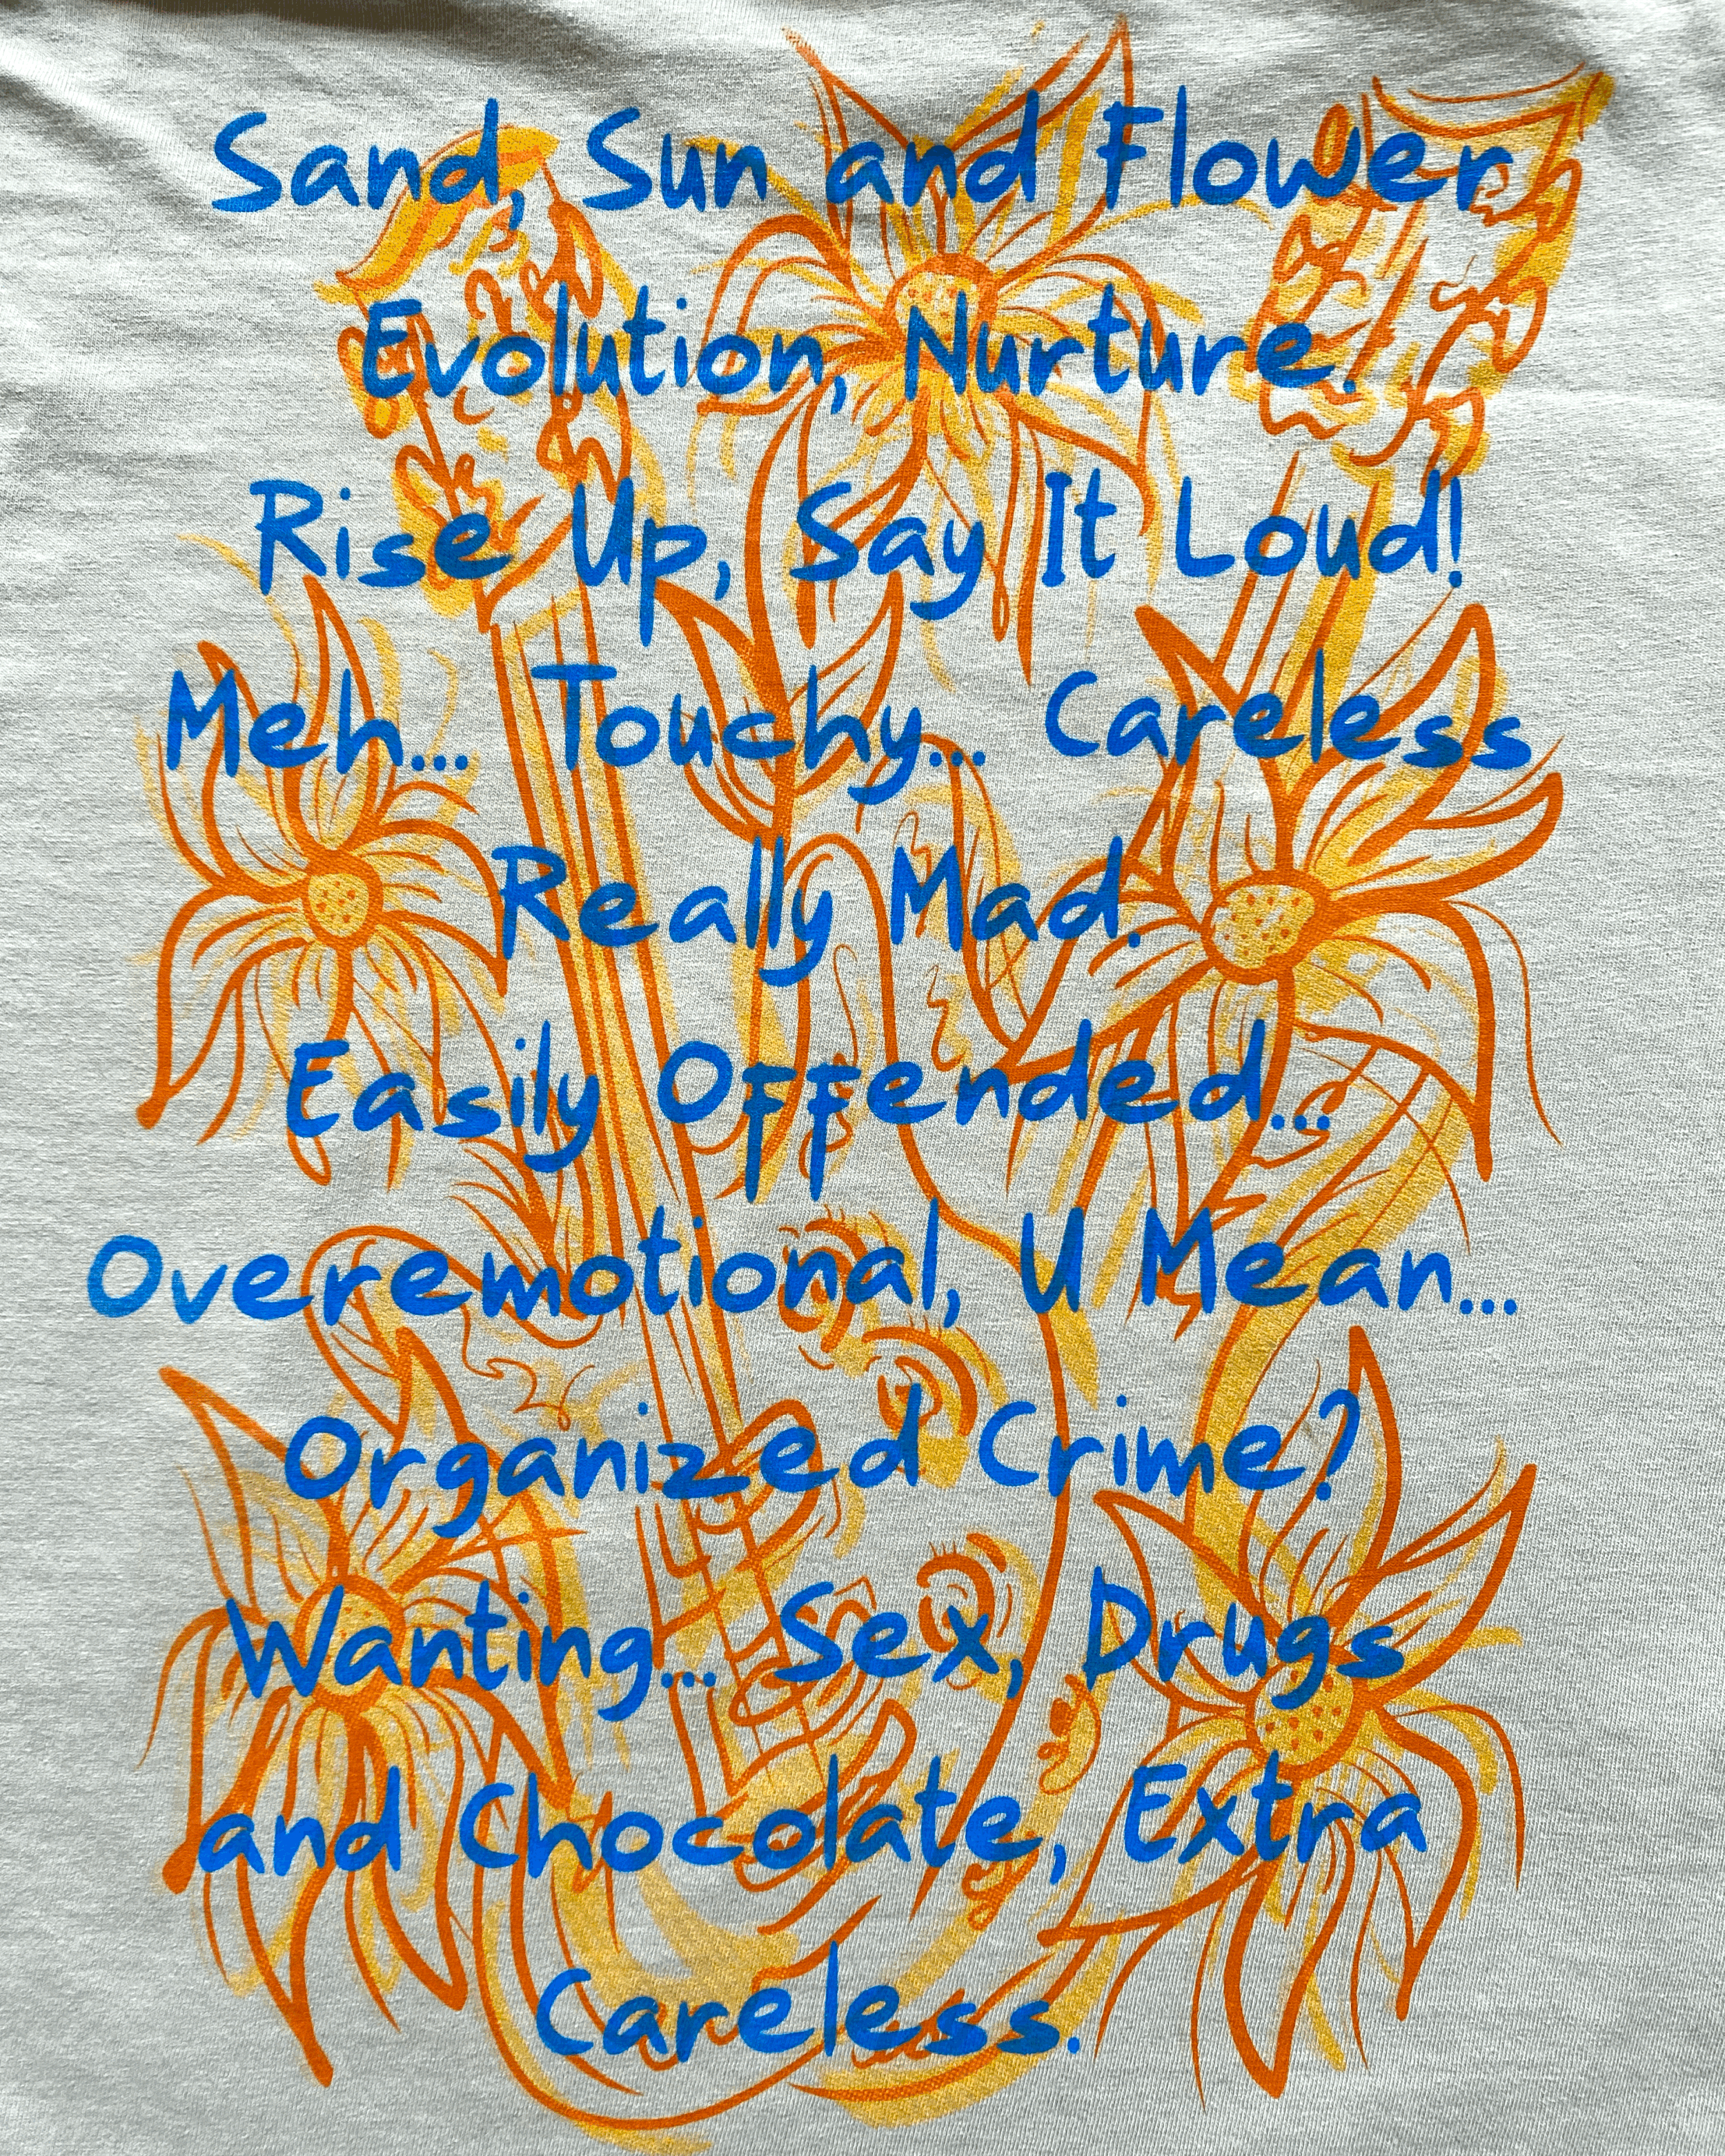 Sand, Sun and Flower
Evolution, Nurture.
Rise Up, Say It Loud!
Meh... Touchy... Careless
Really Mad.
Easily Offended...
Overemotional, U Mean...
Organized Crime?
Wanting... Sex, Drugs
and Chocolate, Extra
Careless.